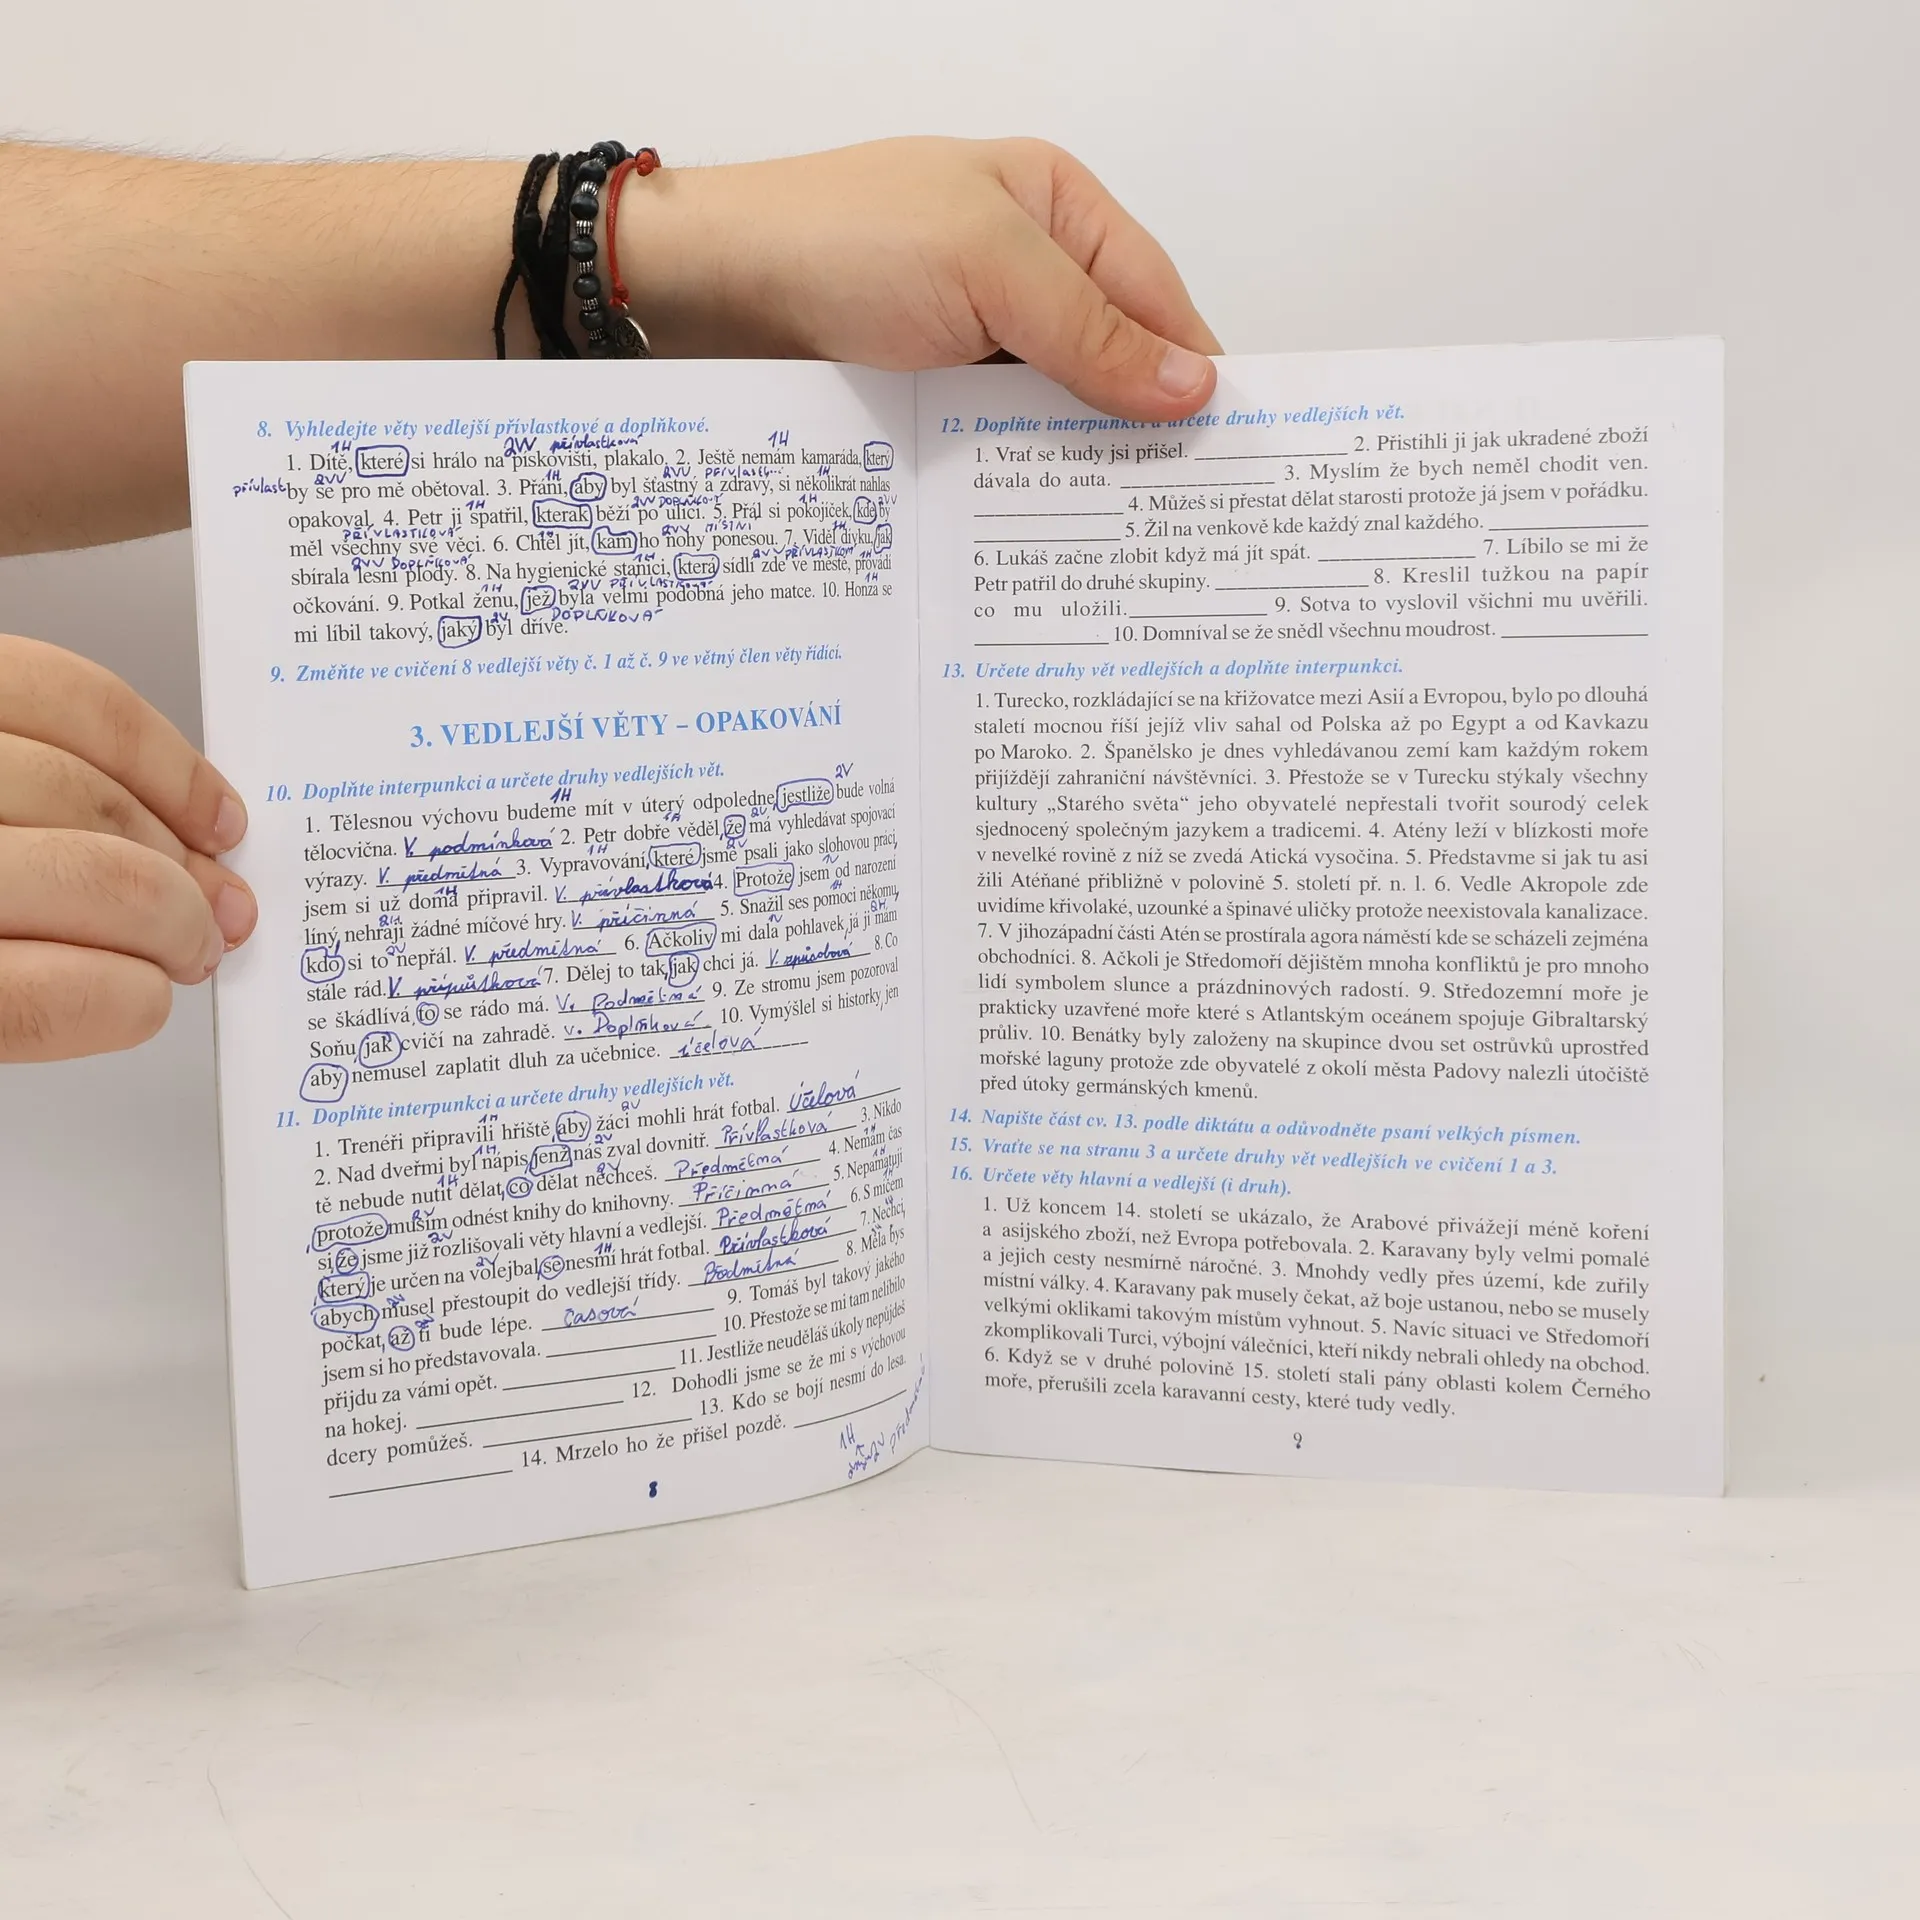 8. Vyhledejte věty vedlejší přívlastkové a doplňkové.
1H 2VV přívlastková 1H
1. Dítě, které si hrálo na pískovišti, plakalo. 2. Ještě nemám kamaráda, který
přívlast 2VV 1H 2VV přívlast... 1H
by se pro mě obětoval. 3. Přání, aby byl šťastný a zdravý, si několikrát nahlas
1H 2VV DOPLŇKOVÁ 1H 2VV
opakoval. 4. Petr ji spatřil, kterak běží po ulici. 5. Přál si pokojíček, kde by
PŘÍVLASTKOVÁ 1H 2VV MÍSTNÍ 1H
měl všechny své věci. 6. Chtěl jít, kam ho nohy ponesou. 7. Viděl dívku, jak
2VV DOPLŇKOVÁ 1H 2VV PŘÍVLASTKOVÁ 1H
sbírala lesní plody. 8. Na hygienické stanici, která sídlí zde ve městě, provádí
1H 2VV PŘÍVLASTKOVÁ 1H
očkování. 9. Potkal ženu, jež byla velmi podobná jeho matce. 10. Honza se
2V DOPLŇKOVÁ
mi líbil takový, jaký byl dříve.
9. Změňte ve cvičení 8 vedlejší věty č. 1 až č. 9 ve větný člen věty řídící.
3. VEDLEJŠÍ VĚTY – OPAKOVÁNÍ
10. Doplňte interpunkci a určete druhy vedlejších vět.
1H 2V
1. Tělesnou výchovu budeme mít v úterý odpoledne, jestliže bude volná
tělocvična. V. podmínková 2. Petr dobře věděl, že má vyhledávat spojovací
výrazy. V. předmětná 3. Vypravování, které jsme psali jako slohovou práci,
jsem si už doma připravil. V. přívlastková 4. Protože jsem od narození
líný, nehraji žádné míčové hry. V. příčinná 5. Snažil ses pomoci někomu,
kdo si to nepřál. V. předmětná 6. Ačkoliv mi dala pohlavek, já ji mám
stále rád. V. přípustková 7. Dělej to tak, jak chci já. V. způsobová 8. Co
se škádlívá, to se rádo má. V. Podmětná 9. Ze stromu jsem pozoroval
Soňu, jak cvičí na zahradě. V. Doplňková 10. Vymýšlel si historky, jen
aby nemusel zaplatit dluh za učebnice. účelová
11. Doplňte interpunkci a určete druhy vedlejších vět.
1H 2V
1. Trenéři připravili hřiště, aby žáci mohli hrát fotbal. Účelová
2. Nad dveřmi byl nápis, jenž nás zval dovnitř. Přívlastková 3. Nikdo
tě nebude nutit dělat, co dělat nechceš. Předmětná 4. Nemám čas
, protože musím odnést knihy do knihovny. Příčinná 5. Nepamatuji
si, že jsme již rozlišovali věty hlavní a vedlejší. Předmětná 6. S míčem
, který je určen na volejbal, se nesmí hrát fotbal. Přívlastková 7. Nechci,
, abych musel přestoupit do vedlejší třídy. Předmětná 8. Měla bys
počkat, až ti bude lépe. Časová 9. Tomáš byl takový jakého
jsem si ho představovala. 10. Přestože se mi tam nelíbilo
přijdu za vámi opět. 11. Jestliže neuděláš úkoly nepůjdeš
na hokej. 12. Dohodli jsme se že mi s výchovou
dcery pomůžeš. 13. Kdo se bojí nesmí do lesa.
14. Mrzelo ho že přišel pozdě.
1H
8
12. Doplňte interpunkci a určete druhy vedlejších vět.
1. Vrať se kudy jsi přišel. 2. Přistihli ji jak ukradené zboží
dávala do auta. 3. Myslím že bych neměl chodit ven.
4. Můžeš si přestat dělat starosti protože já jsem v pořádku.
5. Žil na venkově kde každý znal každého.
6. Lukáš začne zlobit když má jít spát. 7. Líbilo se mi že
Petr patřil do druhé skupiny. 8. Kreslil tužkou na papír
co mu uložili. 9. Sotva to vyslovil všichni mu uvěřili.
10. Domníval se že snědl všechnu moudrost.
13. Určete druhy vět vedlejších a doplňte interpunkci.
1. Turecko, rozkládající se na křižovatce mezi Asií a Evropou, bylo po dlouhá
staletí mocnou říší jejíž vliv sahal od Polska až po Egypt a od Kavkazu
po Maroko. 2. Španělsko je dnes vyhledávanou zemí kam každým rokem
přijíždějí zahraniční návštěvníci. 3. Přestože se v Turecku stýkaly všechny
kultury „Starého světa“ jeho obyvatelé nepřestali tvořit sourodý celek
sjednocený společným jazykem a tradicemi. 4. Atény leží v blízkosti moře
v nevelké rovině z níž se zvedá Atická vysočina. 5. Představme si jak tu asi
žili Atéňané přibližně v polovině 5. století př. n. l. 6. Vedle Akropole zde
uvidíme křivolaké, uzounké a špinavé uličky protože neexistovala kanalizace.
7. V jihozápadní části Atén se prostírala agora náměstí kde se scházeli zejména
obchodníci. 8. Ačkoli je Středomoří dějištěm mnoha konfliktů je pro mnoho
lidí symbolem slunce a prázdninových radostí. 9. Středozemní moře je
prakticky uzavřené moře které s Atlantským oceánem spojuje Gibraltarský
průliv. 10. Benátky byly založeny na skupince dvou set ostrůvků uprostřed
mořské laguny protože zde obyvatelé z okolí města Padovy nalezli útočiště
před útoky germánských kmenů.
14. Napište část cv. 13. podle diktátu a odůvodněte psaní velkých písmen.
15. Vraťte se na stranu 3 a určete druhy vět vedlejších ve cvičení 1 a 3.
16. Určete věty hlavní a vedlejší (i druh).
1. Už koncem 14. století se ukázalo, že Arabové přivážejí méně koření
a asijského zboží, než Evropa potřebovala. 2. Karavany byly velmi pomalé
a jejich cesty nesmírně náročné. 3. Mnohdy vedly přes území, kde zuřily
místní války. 4. Karavany pak musely čekat, až boje ustanou, nebo se musely
velkými oklikami takovým místům vyhnout. 5. Navíc situaci ve Středomoří
zkomplikovali Turci, výbojní válečníci, kteří nikdy nebrali ohledy na obchod.
6. Když se v druhé polovině 15. století stali pány oblasti kolem Černého
moře, přerušili zcela karavanní cesty, které tudy vedly.
9